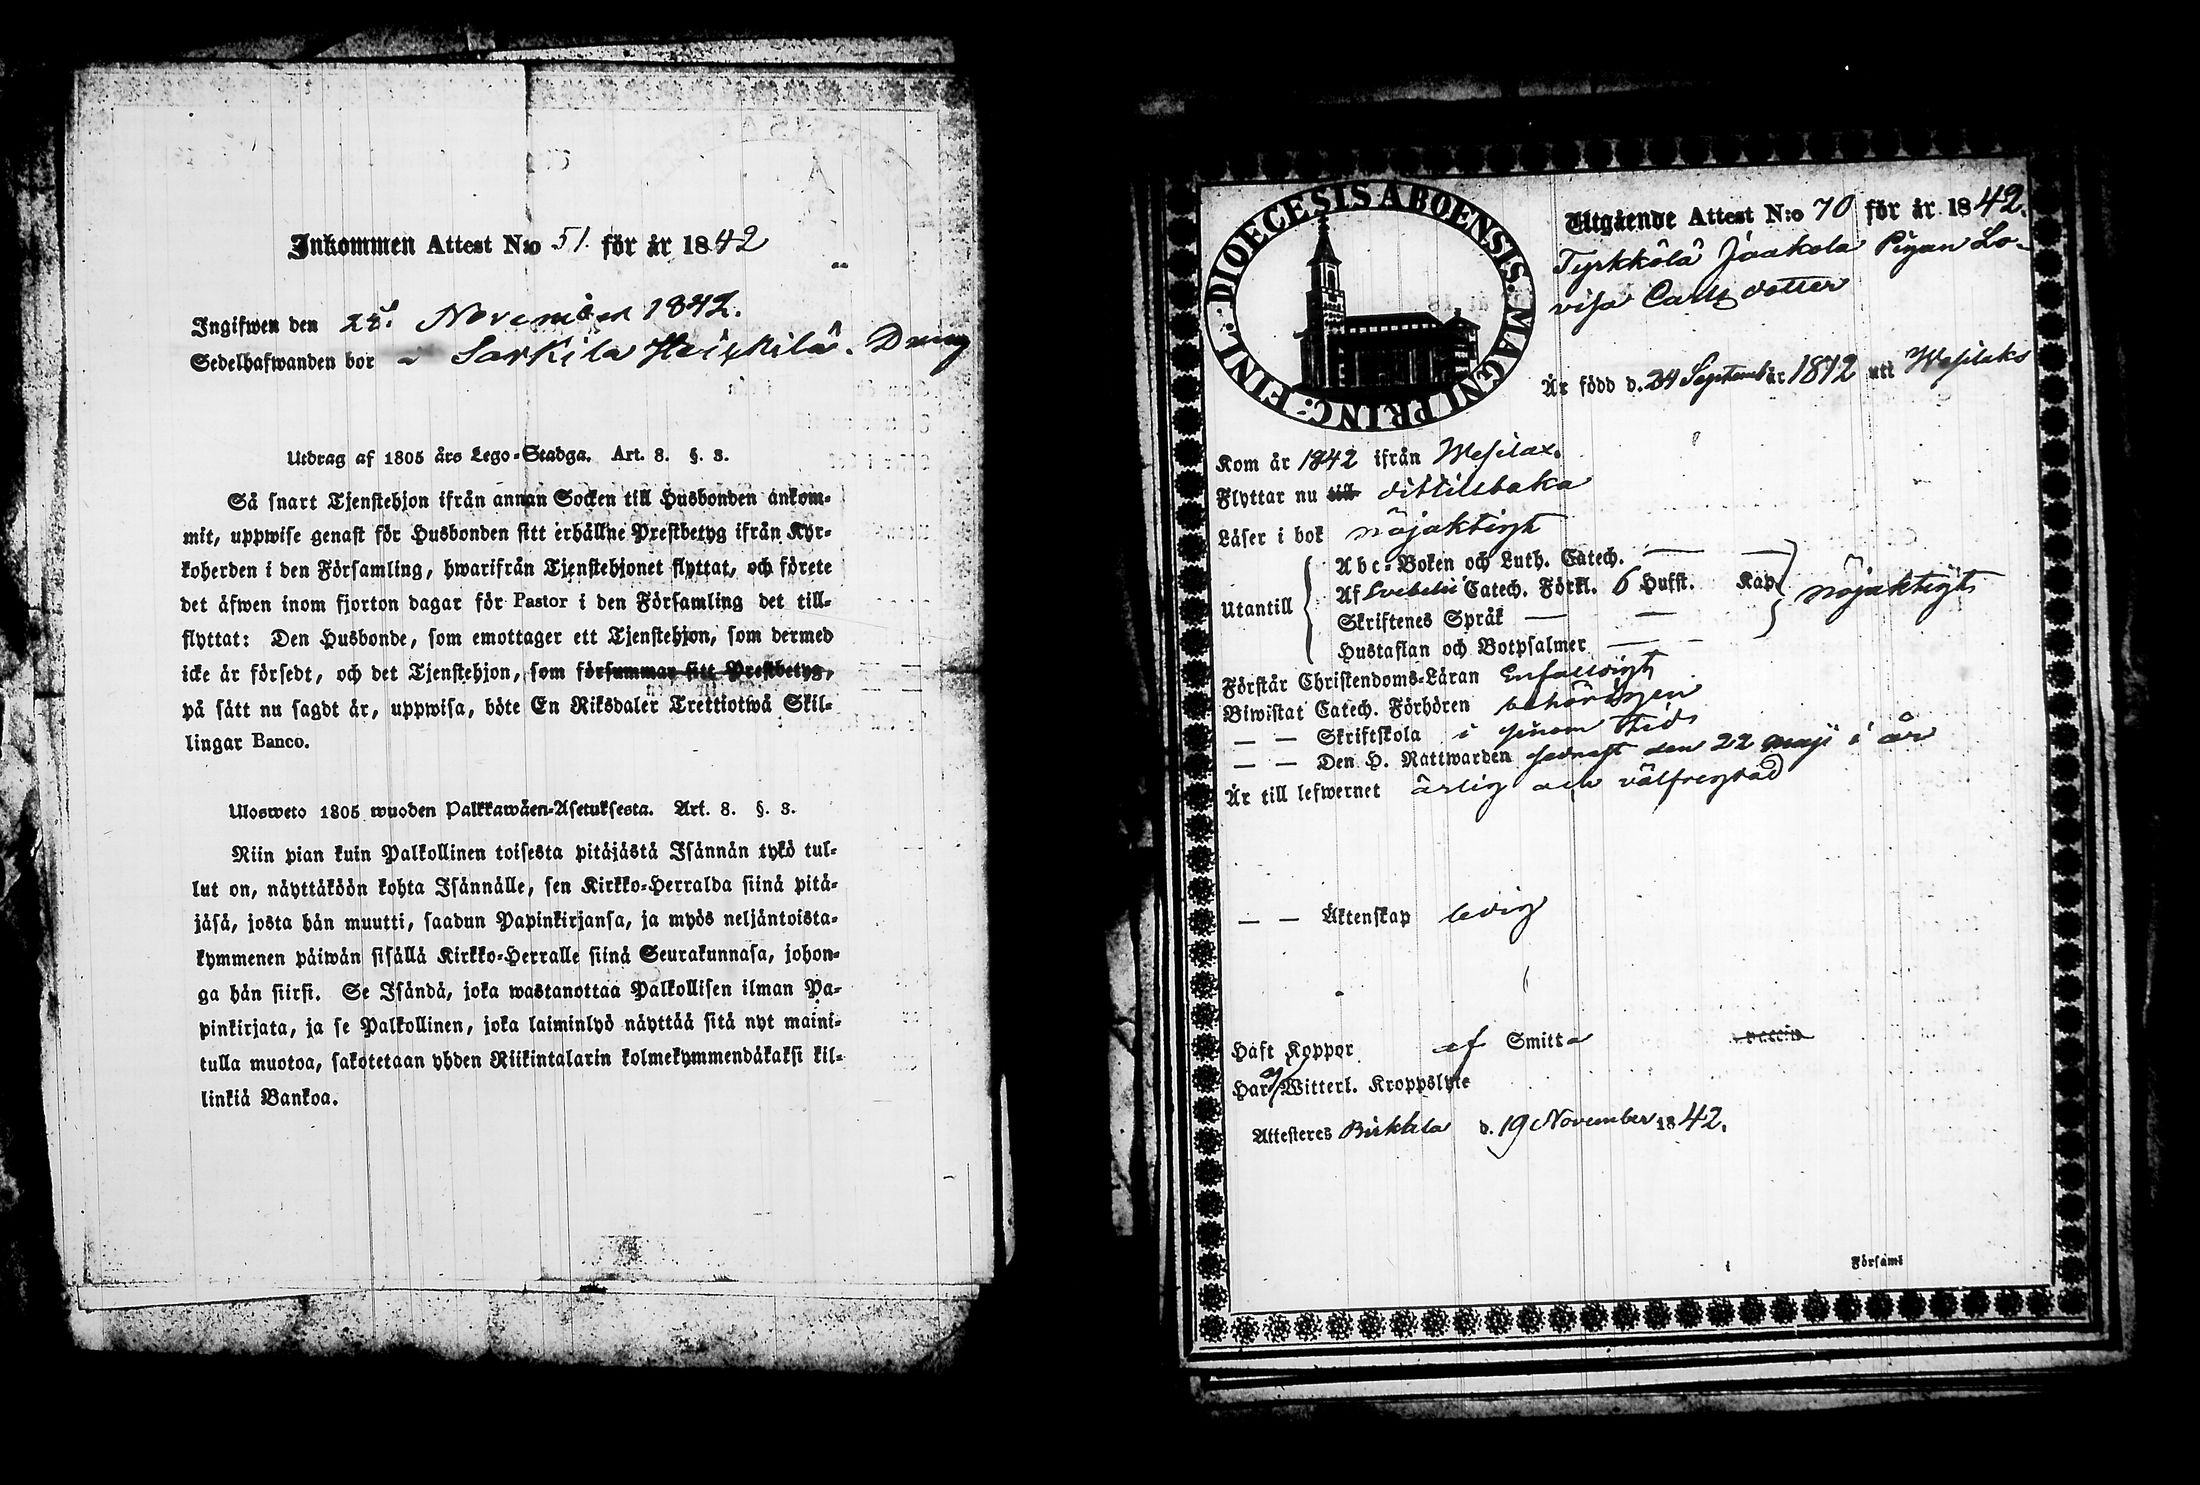 Inkommen Attest N:o 51 för år 1842
Ingifwen den 22 November 1842.
Sedelhafwanden bor Sarkila Heikkilä.
Utdrag af 1805 års Lego-Stadga. Art. 8. §. 3.
Så snart Tjenstehjon ifrån annan Socken till Husbonden ankom-
mit, uppwise genast för Husbonden sitt erhållne Prestbetyg ifrån Kyr-
koherden i den Församling, hwarifrån Tjenstehjonet flyttat, och förete
det äfwen inom fjorton dagar för Pastor i den Församling det till-
flyttat: Den Husbonde, som emottager ett Tjenstehjon, som dermed
icke är försedt, och det Tjenstehjon, som försummar sitt Prestbetyg,
på sätt nu sagdt är, uppwisa, böte En Riksdaler Trettiotwå Skil-
lingar Banco.
Ulosweto 1805 wuoden Palkkawäen-Asetuksesta. Art. 8. §. 3.
Niin pian kuin Palkollinen toisesta pitäjästä Isännän tykö tul-
lut on, näyttäköön kohta Isännälle, sen Kirkko-Herralda siinä pitä-
jäsä, josta hän muutti, saadun Papinkirjansa, ja myös neljäntoista-
kymmenen päiwän sisällä Kirkko-Herralle siinä Seurakunnasa, johon-
ga hän siirsi. Se Isändä, joka wastanottaa Palkollisen ilman Pa-
pinkirjata, ja se Palkollinen, joka laiminlyö näyttää sitä nyt maini-
tulla muotoa, sakotetaan yhden Riikintalarin kolmekymmendäkaksi kil-
linkiä Bankoa.
DIOECESIS ABOENSIS. MAGNI PRINC: FINL.
Utgående Attest N:o 70 för år 1842.
Tyrkkölä Jaakola Pigan Lo-
visa Carls dotter
Är född d. 24 September 1812 uti Wesilaks
Kom år 1842 ifrån Wesilax.
Flyttar nu till dit tillbaka
Läser i bok nöjaktigt
Utantill
Abc-Boken och Luth. Catech. — —
Af Svebelii Catech. Förkl. 6 Hufst. Kap. nöjaktigt
Skriftenes Språk — —
Hustaflan och Botpsalmer — —
Förstår Christendoms-Läran Enfalldigt
Biwistat Catech. Förhören behörigen
— — Skriftskola i sinom tid
— — Den H. Nattwarden sednast den 22 maji i år
Är till lefwernet ärlig och välfrejdad
— — Äktenskap ledig
Haft Koppor af Smitta vaccin
Har ej Witterl. Kroppslyte
Attesteres Birkkala d. 19 November 1842.
Församl